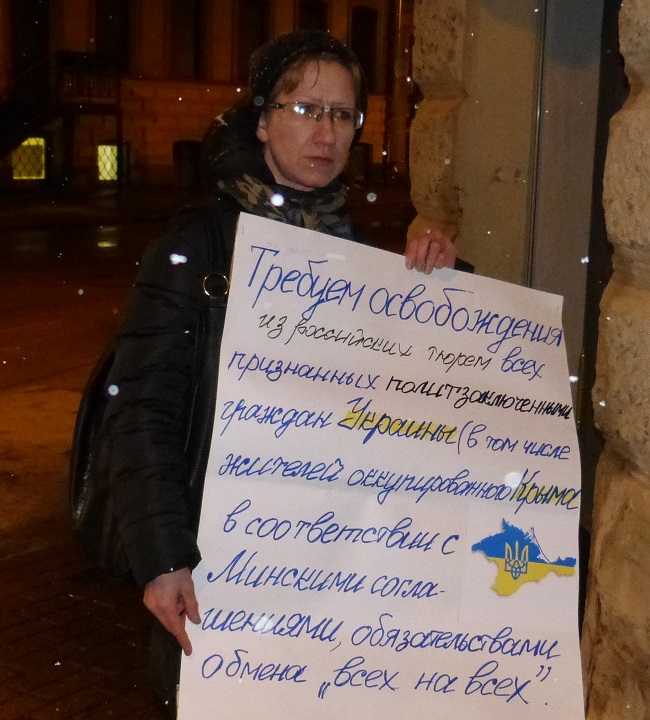 Требуем освобождения
из российских тюрем всех
признанных политзаключенными
граждан Украины (в том числе
жителей оккупированного Крыма
в соответствии с
Минскими согла-
шениями, обязательствами
обмена „всех на всех".